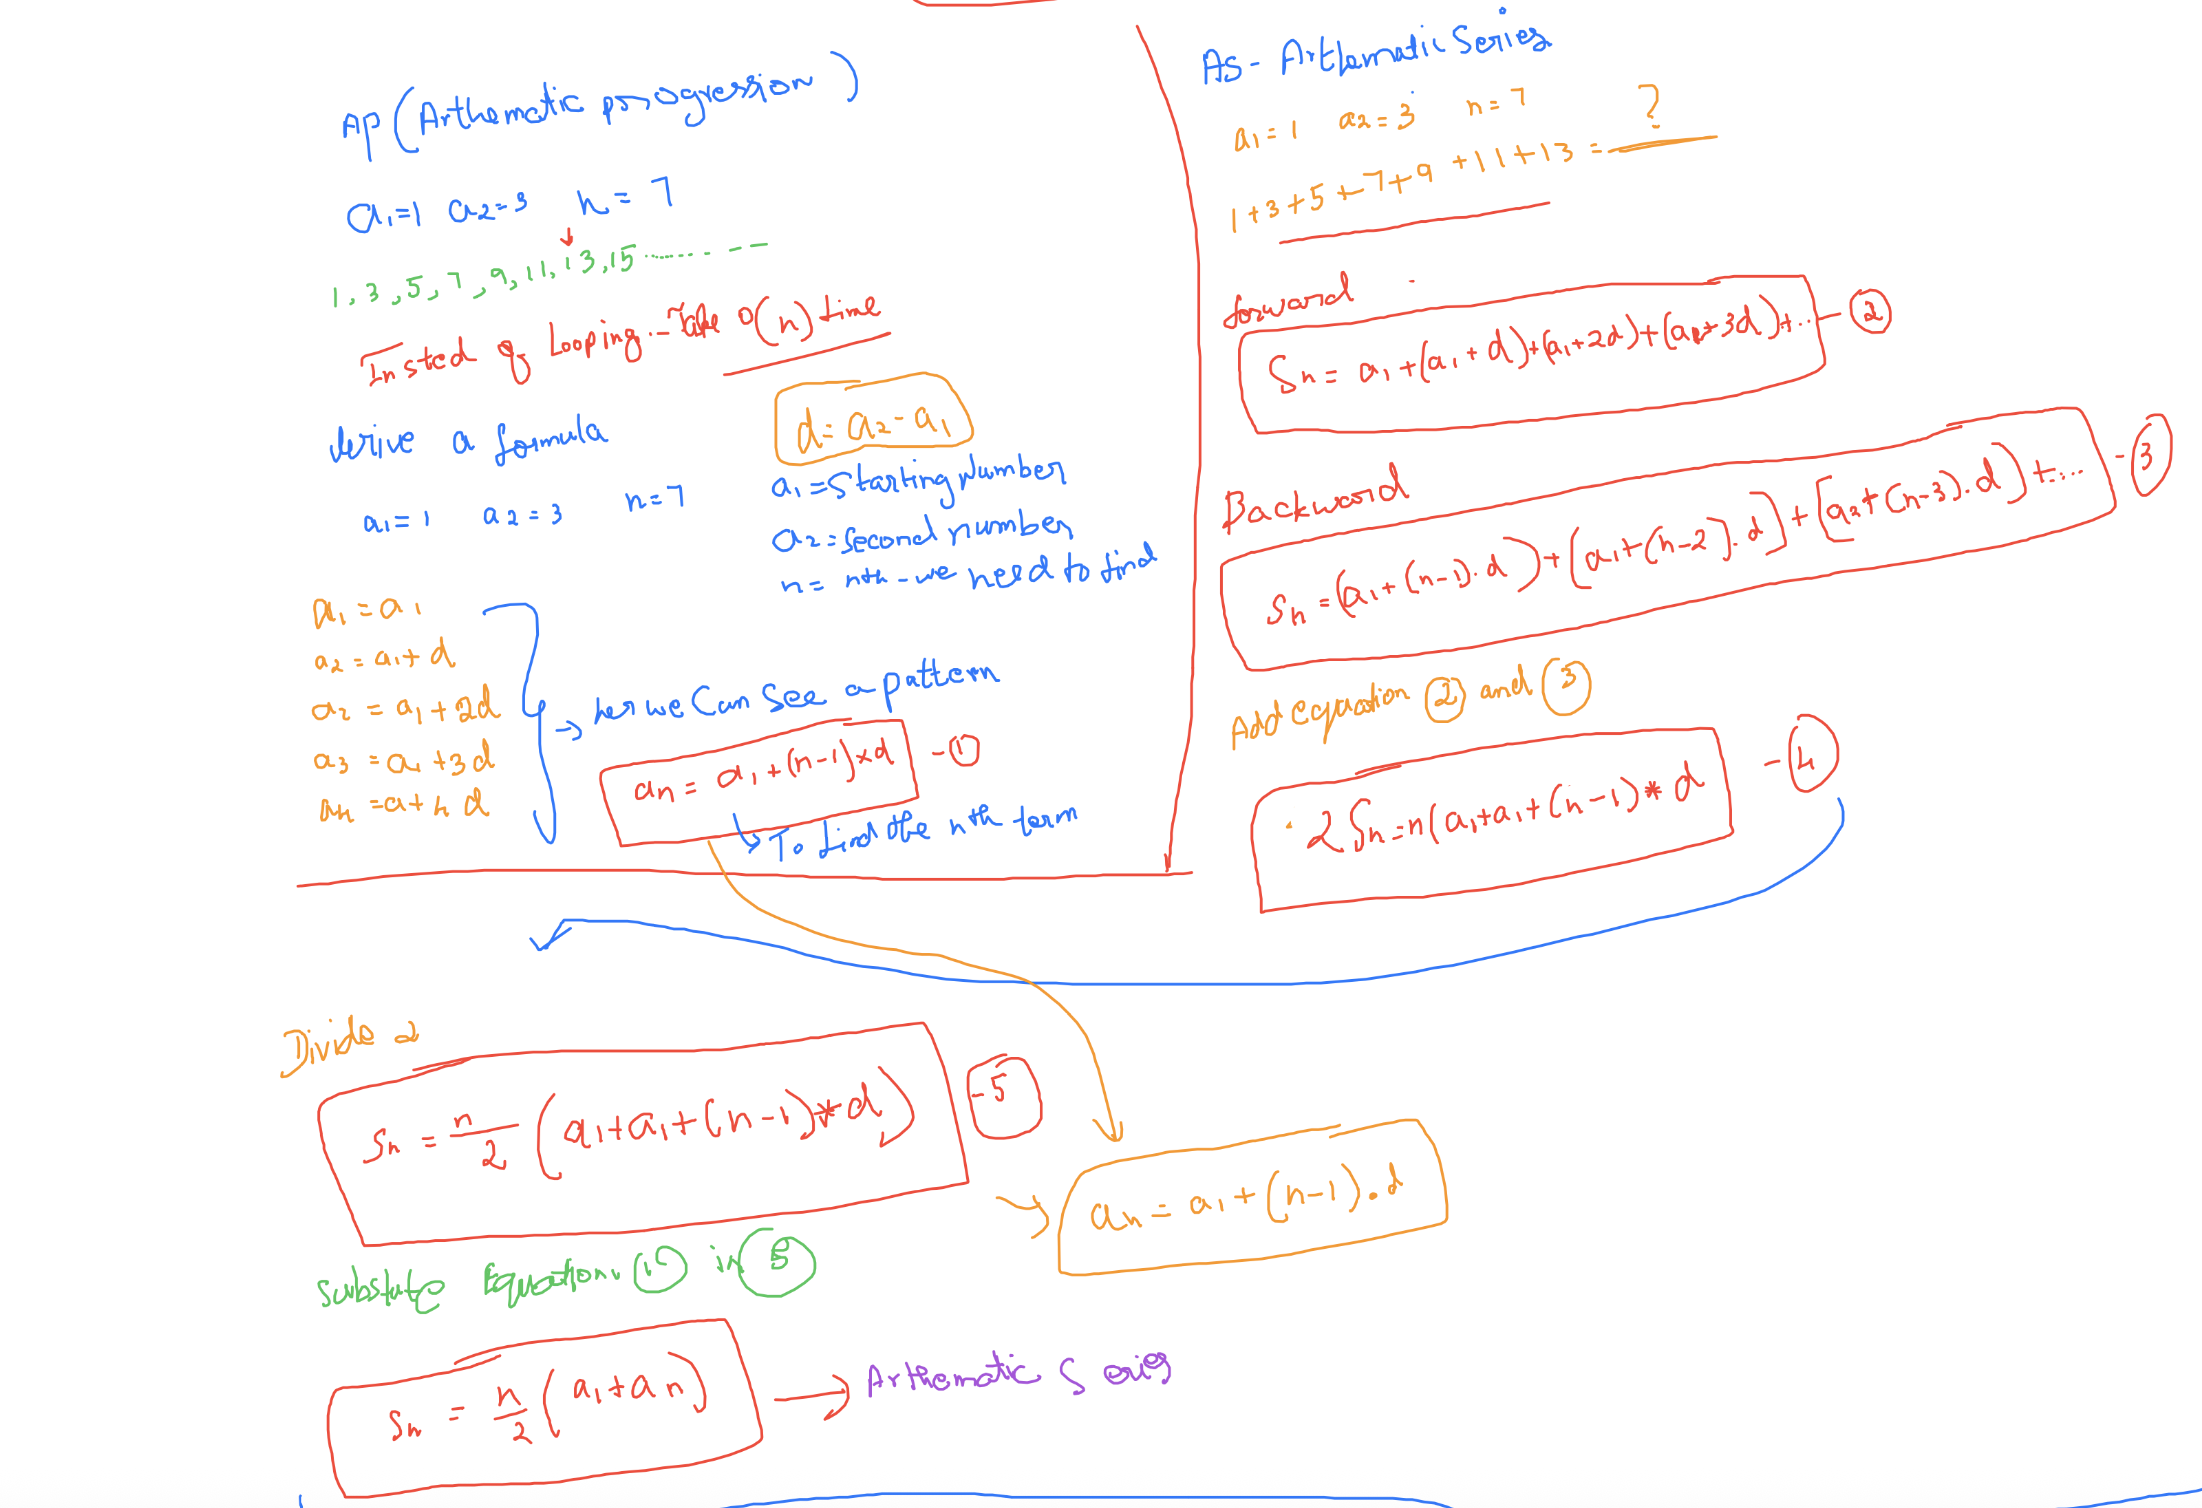 AP (Arthematic progression)
a1=1 a2=3 n=7
1, 3, 5, 7, 9, 11, 13, 15 ........ --
Insted of Looping - Take O(n) time
derive a formula
d = a2 - a1
a1 = 1 a2 = 3 n = 7
a1 = Starting Number
a2 = second number
n = nth - we need to find
a1 = a1
a2 = a1 + d
a2 = a1 + 2d
a3 = a1 + 3d
an = a + n d
→ her we Can See a pattern
an = a1 + (n-1) * d - 1
To find the nth term
AS - Arthamatic Series
a1 = 1 a2 = 3 n = 7
1 + 3 + 5 + 7 + 9 + 11 + 13 = ?
forward
Sn = a1 + (a1 + d) + (a1 + 2d) + (a1 + 3d) + ... - 2
Backword
Sn = (a1 + (n-1).d) + [a1 + (n-2).d] + [a2 + (n-3).d) + ... - 3
Add equation 2 and 3
2Sn = n(a1 + a1 + (n-1) * d - 4
Divide 2
Sn = n/2 (a1 + a1 + (n-1) * d) - 5
an = a1 + (n-1).d
Substute Equation 1 in 5
Sn = n/2 (a1 + an) → Arthematic Series